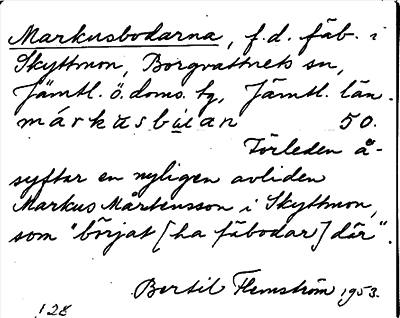 Markusbodarna, f.d. fäb. i
Skyttmon, Borgvattnets sn,
Jämtl. ö. doms. tg, Jämtl. län.
márkasbùtan 50.
Förleden å-
syftar en nyligen avliden
Markus Mårtensson i Skyttmon,
som "börjat [ha fäbodar] där".
Bertil Flemström 1953.
128